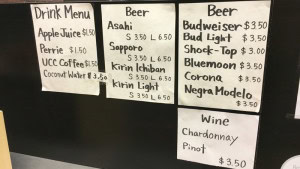 Drink Menu
Apple Juice $1.50
Perrie $1.50
UCC Coffee $1.50
Coconut Water $3.50
Beer
Asahi
S 3.50 L 6.50
Sapporo
S 3.50 L 6.50
Kirin Ichiban
S 3.50 L 6.50
Kirin Light
S 3.50 L 6.50
Beer
Budweiser $3.50
Bud Light $3.50
Shock-Top $3.00
Bluemoon $3.50
Corona $3.50
Negra Modelo
$3.50
Wine
Chardonnay
Pinot
$3.50